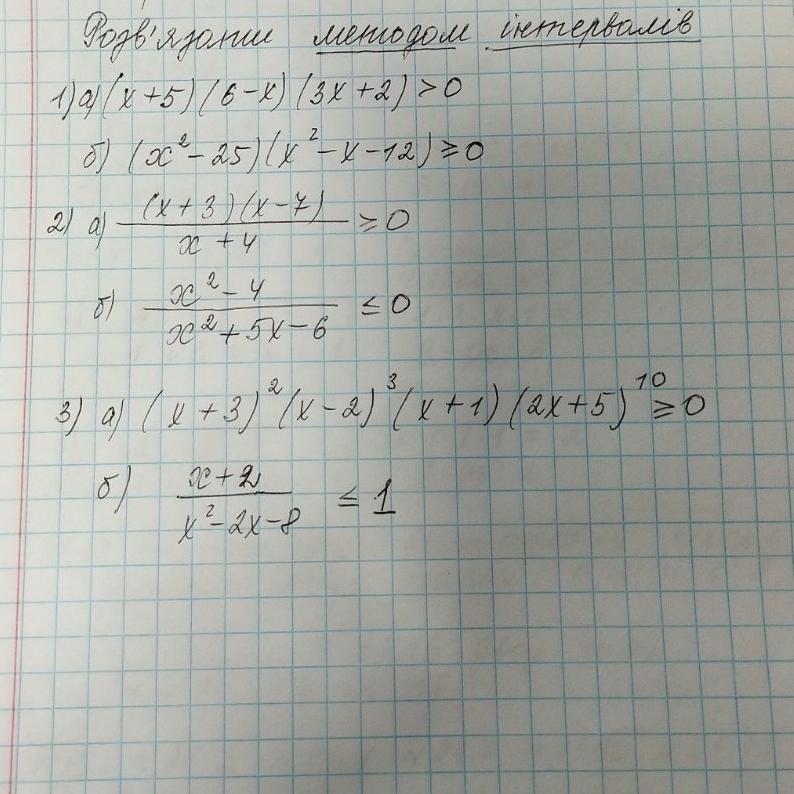 Розв'язати методом інтервалів
1) а) (x+5)(6-x)(3x+2)>0
б) (x²-25)(x²-x-12)≥0
2) а) (x+3)(x-7)/x+4 ≥0
б) x²-4/x²+5x-6 ≤0
3) а) (x+3)²(x-2)³(x+1)(2x+5)¹⁰≥0
б) x+2/x²-2x-8 ≤1